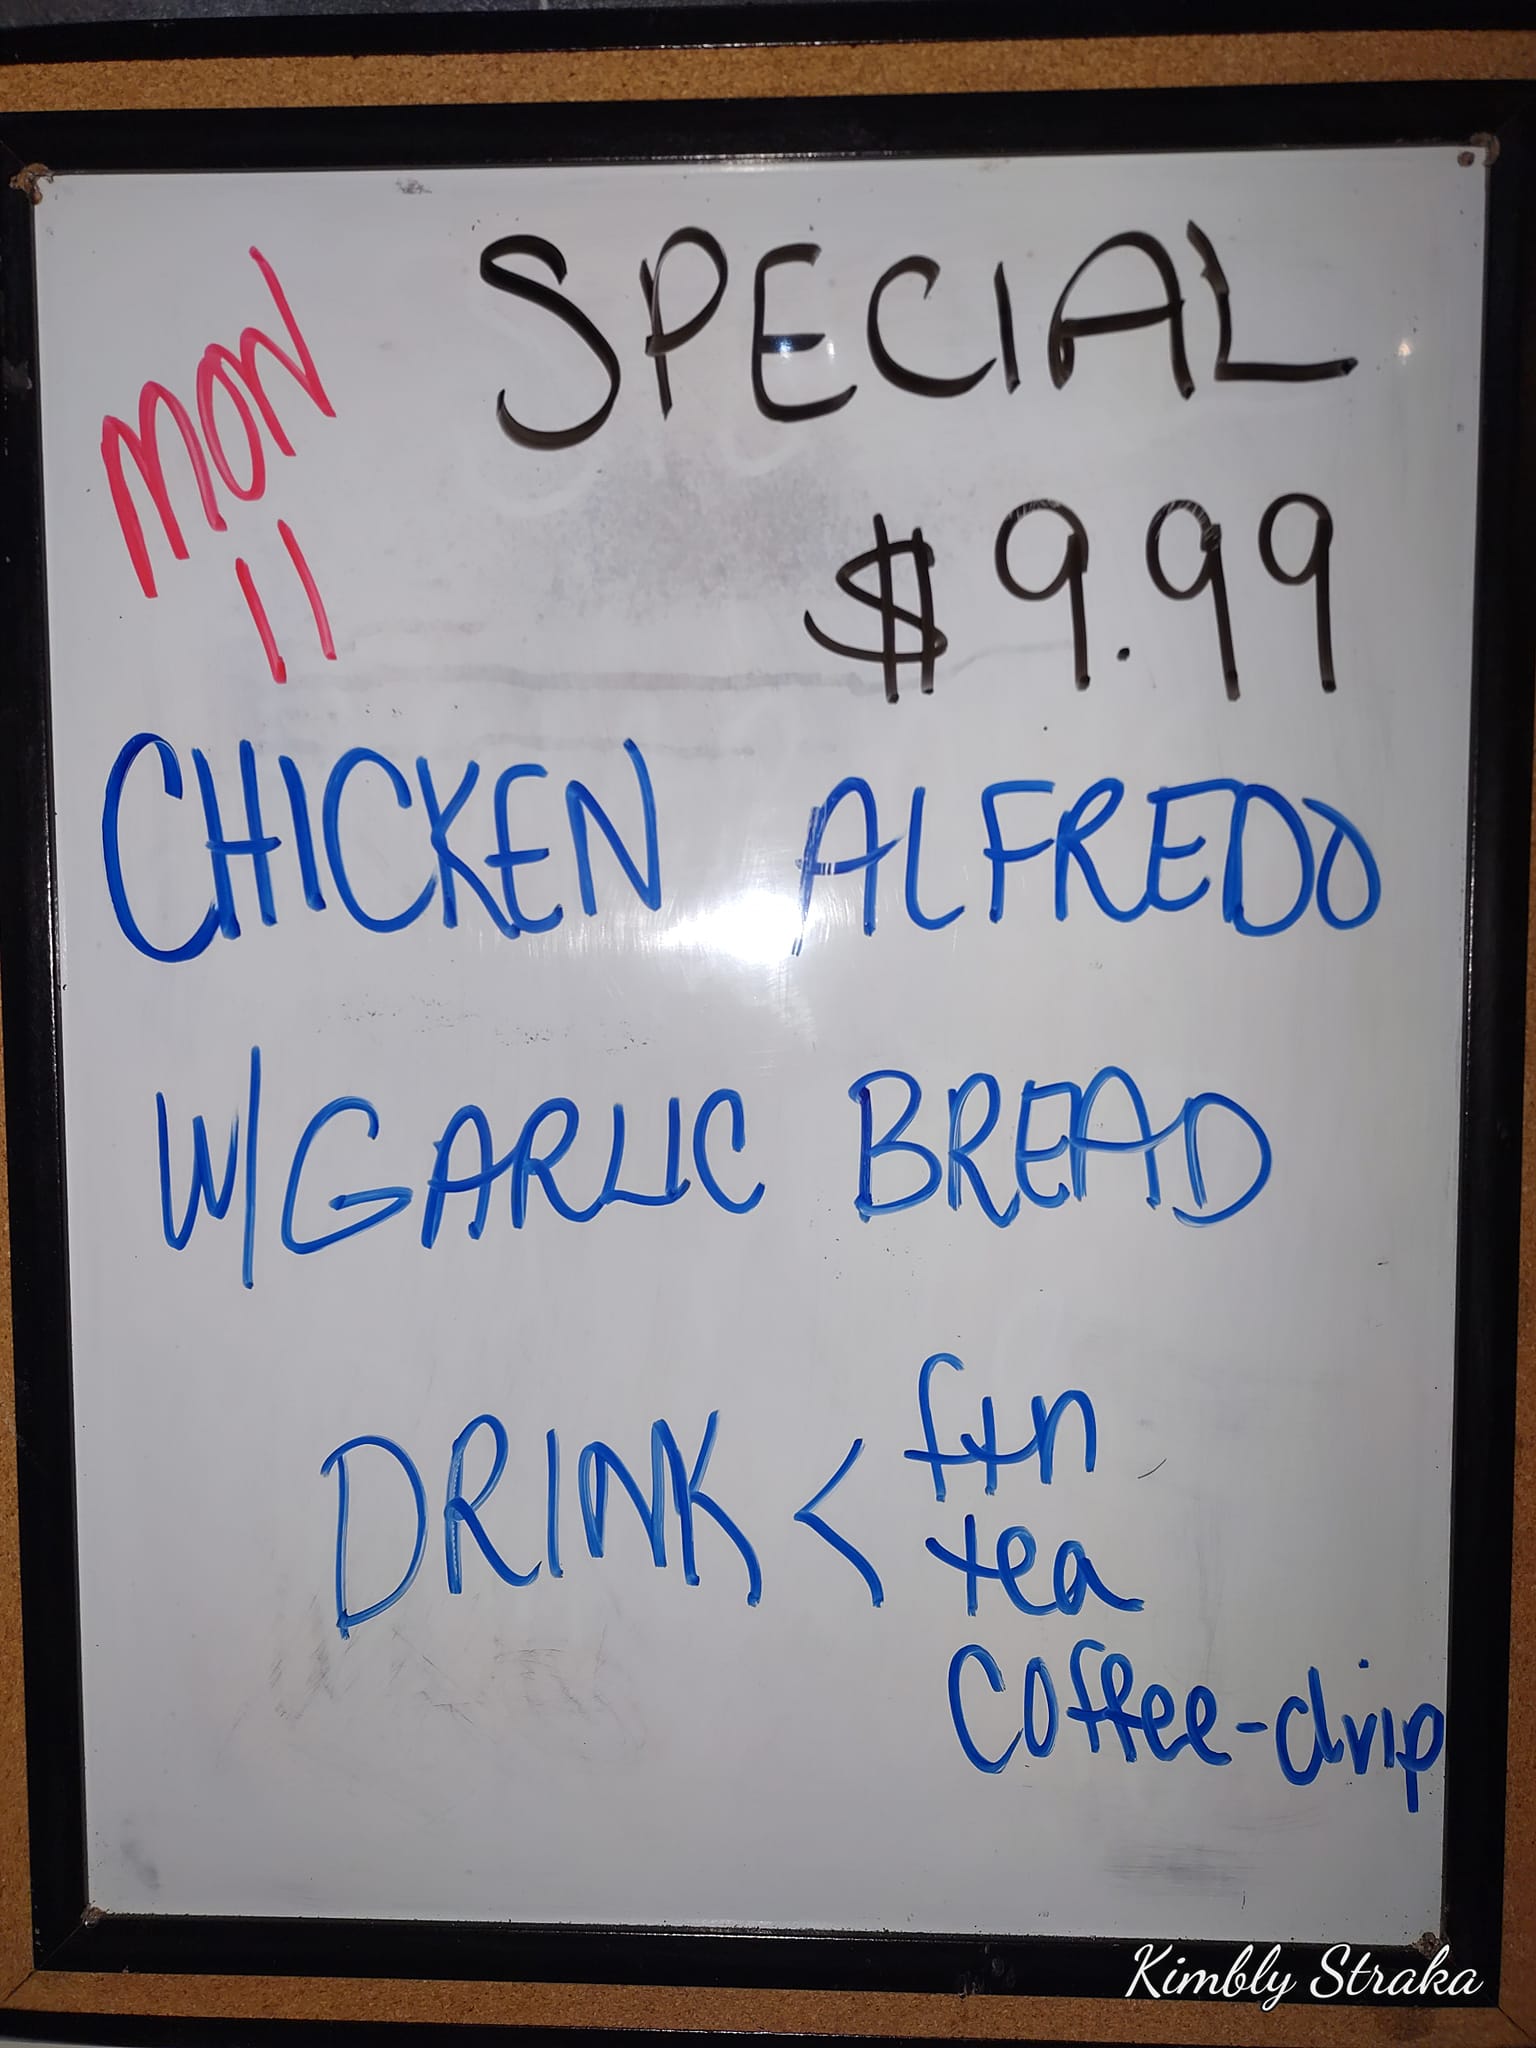 MON
11
SPECIAL
$9.99
CHICKEN ALFREDO
W/GARLIC BREAD
DRINK < ftn
tea
Coffee-drip
Kimbly Straka